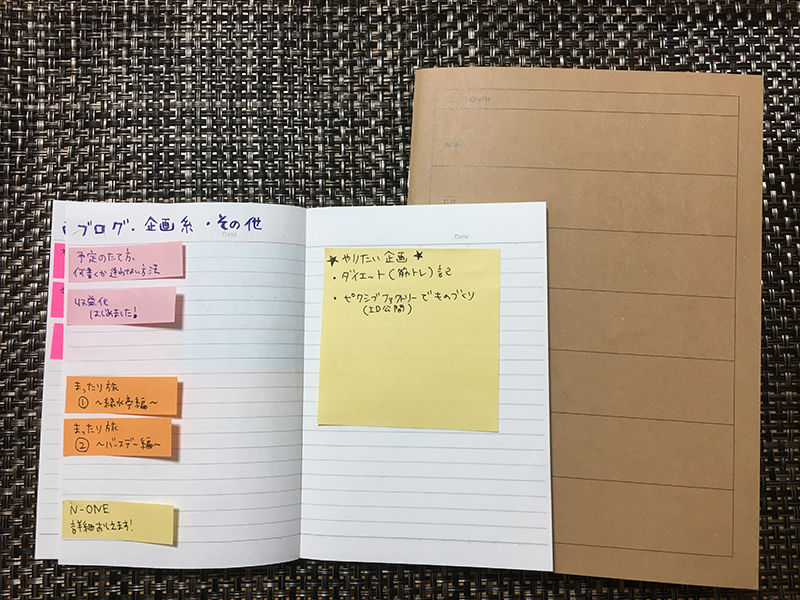 ブログ・企画系・その他
Date
予定のたて方、
何書くか迷わない方法
収益化
はじめました!
まったり旅
① 〜緑水亭編〜
まったり旅
② 〜バースデー編〜
N-ONE
詳細おしえます!
Date
★ やりたい企画 ★
・ダイエット(筋トレ)記
・ピクシブファクトリーでものづくり
(ID公開)
MONTH